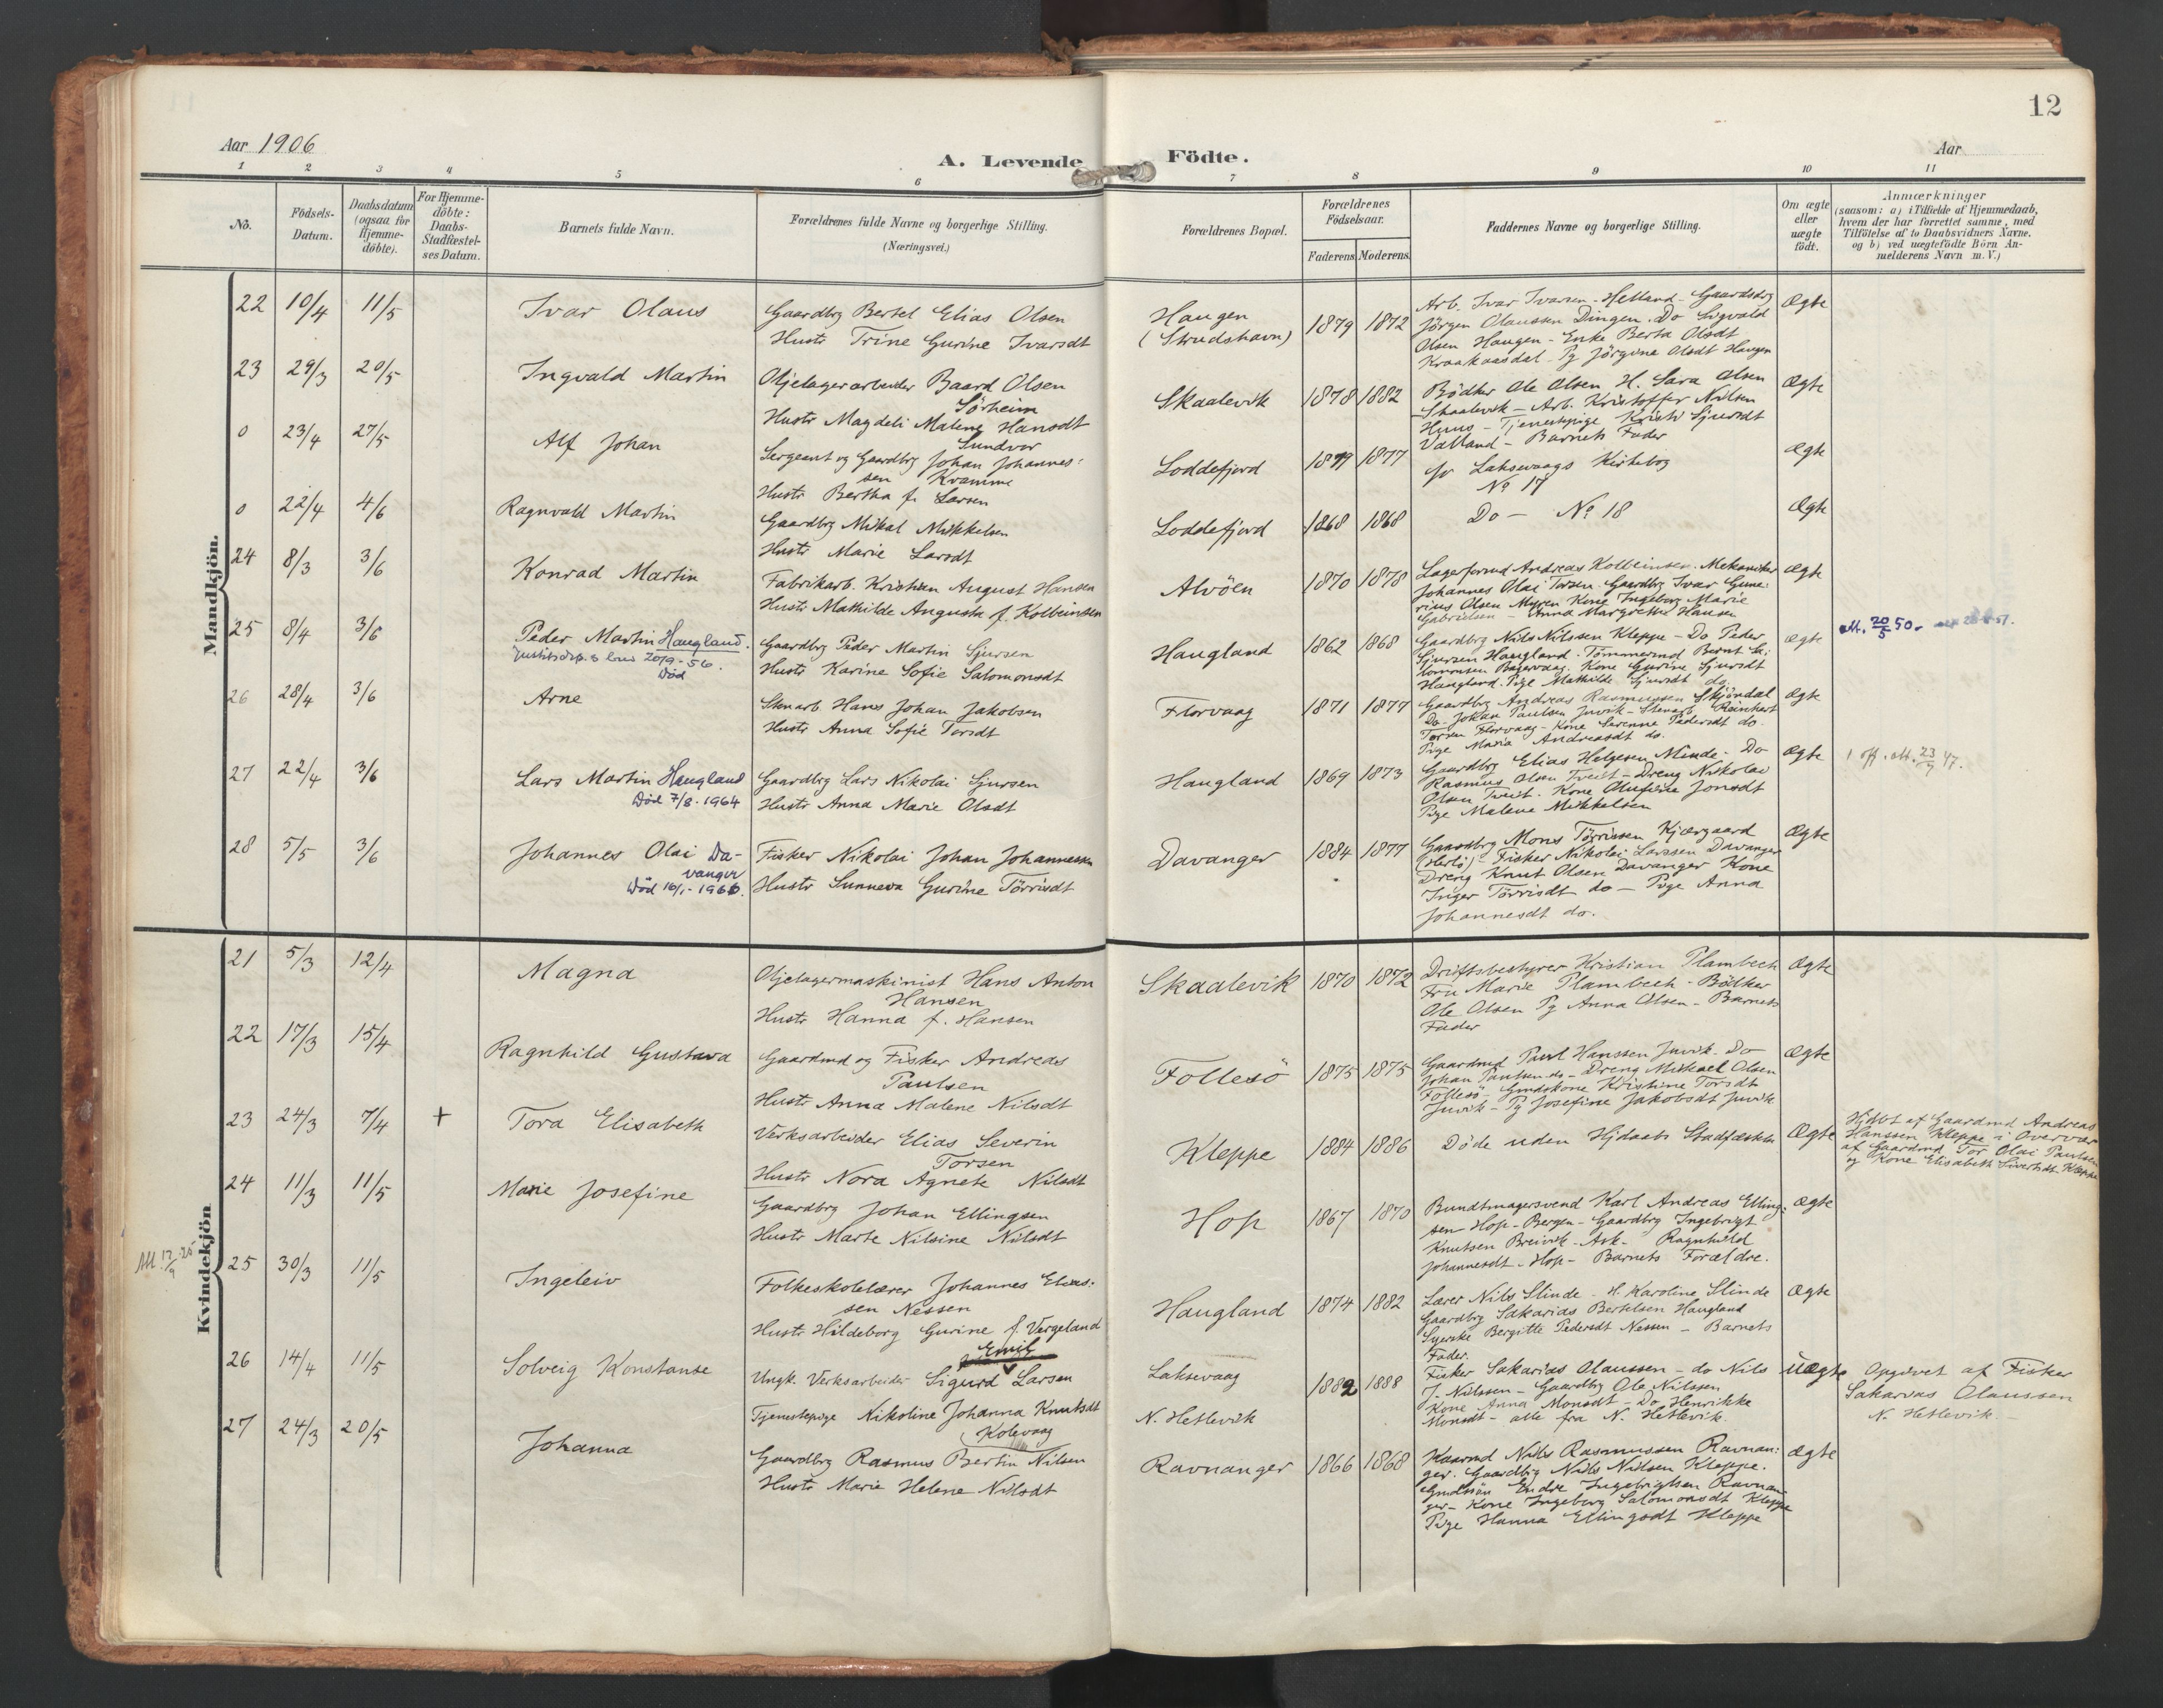 12
Aar 1906
A. Levende
Födte.
Aar
1 2 3 4 5 6 7 8 9 10 11
No.
Födsels-
Datum.
Daabsdatum
(ogsaa for
Hjemme-
döbte).
For Hjemme-
döbte:
Daabs-
Stadfæstel-
ses Datum.
Barnets fulde Navn.
Forældrenes fulde Navne og borgerlige Stilling.
(Næringsvei.)
Forældrenes Bopæl.
Forældrenes
Födselsaar.
Faderens Moderens
Faddernes Navne og borgerlige Stilling.
Om ægte
eller
uægte
födt.
Anmærkninger
(saasom: a) i Tilfælde af Hjemmedaab,
hvem der har forrettet samme, med
Tilföielse af to Daabsvidners Navne.
og b) ved uægtefödte Börn An-
melderens Navn m. V.)
Mandkjön.
22 10/4 11/5 Ivar Olaus
Gaardbrg Bertel Elias Olsen
Hustr Trine Gurine Ivarsdt
Haugen
(Strudshavn)
1879 1872
Arb. Ivar Ivarsen - Helland - Gaardsbrg
Jörgen Olaussen Dingen. Do Sigvald
Olsen Haugen - Enke Berta Olsdt
Kraakaasdal - Pg Jörgine Olsdt Haugen
Ægte
23 29/3 20/5 Ingvald Martin
Oljelagerarbeider Baard Olsen
Sörheim
Hustr Magdeli Malene Hansdt
Sundvor
Skaalevik
1878 1882
Bödker Ole Olsen H. Sara Olsen
Skaalevik - Arb. Kristoffer Nilsen
Huus - Tjenestepige Kristi Sjursdt
Valland - Barnets Fader
Ægte
0 23/4 27/5 Alf Johan
Sergeant og Gaardbrg Johan Johannes:
sen Kvamme
Hustr Bertha f. Larsen
Loddefjord
1879 1877
Laksevaags Kirkebog
No 17
Ægte
0 22/4 4/6 Ragnvald Martin
Gaardbrg Mikal Mikkelsen
Hustr Marie Larsdt
Loddefjord
1868 1868
Do - No 18
Ægte
24 8/3 3/6 Konrad Martin
Fabrikarb. Kristian August Hansen
Hustr Mathilde Augusta f. Kolbeinsen
Alvöen
1870 1878
Lagerformd Andreas Kolbeinsen. Mekaniker
Johannes Olai Torsen. Gaardbrg Ivar Gune:
rius Olsen Myren Kone Ingeborg Marie
Gabrielsen - Anna Margrethe Hansen
Ægte
25 8/4 3/6 Peder Martin Haugland.
20/9-56.
Död
Gaardbrg Peder Martin Sjursen
Hustr Karine Sofie Salomonsdt
Haugland
1862 1868
Gaardbrg Nils Nilssen Kleppe - Do Peder
Sjursen Haugland. Tömmermd Bernt Sa:
lomonsen Bagervaag. Kone Gurine Sjursdt
Haugland. Pige Mathilde Sjursdt do.
Ægte
att. 20/5 50.
26 28/4 3/6 Arne
Stenarb Hans Johan Jakobsen
Hustr Anna Sofie Torsdt
Florvaag
1871 1877
Gaardbrg Andreas Rasmussen Skjöndal
Do - Johan Paulsen Juvik - Stenarb Reinhart
Torsen Florvaag - Kone Severine Pedersdt do.
Pige Maria Andreasdt do.
Ægte
27 22/4 3/6 Lars Martin Haugland
Död 7/8-1964
Gaardbrg Lars Nikolai Sjursen
Hustr Anna Marie Olsdt
Haugland
1869 1873
Gaardbrg Elias Helgesen Minde - Do
Rasmus Olsen Tveit - Dreng Nikolai
Olsen Tveit. Kone Olufine Jonsdt
Pige Malene Mikkelsen
Ægte
1 off. att. 23/7 47.
28 5/5 3/6 Johannes Olai Da-
vanger
Död 16/1-1966.
Fisker Nikolai Johan Johannessen
Hustr Sunneva Gurine Törrisdt
Davanger
1884 1877
Gaardbrg Mons Törrissen Kjærgaard
(Herlö) - Fisker Nikolai Larssen Davanger
Dreng Knut Olsen Davanger Kone
Inger Törrisdt do - Pige Anna
Johannesdt do.
Ægte
Kvindekjön
21 5/3 12/4 Magna
Oljelagermaskinist Hans Anton
Hansen
Hustr Hanna f. Hansen
Skaalevik
1870 1872
Driftsbestyrer Kristian Plambech
Fru Marie Plambech - Bödker
Ole Olsen Pg Anna Olsen - Barnets
Fader
Ægte
22 17/3 15/4 Ragnhild Gustava
Gaardmd og Fisker Andreas
Paulsen
Hustr Anna Malene Nilsdt
Follesö
1875 1875
Gaardmd Paul Hanssen Juvik. Do
Johan Paulsen do - Dreng Mikael Olsen
Follesö - Gmdskone Kristine Torsdt
Juvik - Pg Josefine Jakobsdt Juvik
Ægte
23 24/3 7/4 + Tora Elisabeth
Verksarbeider Elias Severin
Torsen
Hustr Nora Agnete Nilsdt
Kleppe
1884 1886
Döde uden Hjdaabs Stadfæstelse
Ægte
Hjdbt af Gaardmd Andreas
Hanssen Kleppe i Overvær
af Gaardmd Tor Olai Paulsen
og Kone Elisabeth Sivertsdt Kleppe
24 11/3 11/5 Marie Josefine
Gaardbrg Johan Ellingsen
Hustr Marte Nilsine Nilsdt
Hop
1867 1870
Bundtmagersvend Karl Andreas Elling:
sen - Hop - Bergen - Gaardbrg Ingebrigt
Knutsen Breivik - Ask - Ragnhild
Johannesdt - Hop - Barnets Forældre.
Ægte
Att. 12/9 25
25 30/3 11/5 Ingeleiv
Folkeskolelærer Johannes Elias:
sen Nessen
Hustr Hildeborg Gurine f. Vergeland
Haugland
1874 1882
Lærer Nils Slinde - H. Karoline Slinde
Gaardbrg Sakarias Bertelsen Haugland
Syerske Bergitte Pedersdt Nessen - Barnets
Fader.
Ægte
26 14/4 11/5 Solveig Konstanse
Emil
Ungk. Verksarbeider Sigurd Larsen
Tjenestepige Nikoline Johanna Knutsdt
Kolevaag
Laksevaag
N. Hetlevik
1882 1888
Fisker Sakarias Olaussen - do Nils
J. Nilssen - Gaardbrg Ole Nilssen
Kone Anna Monsdt - Do Henrikke
Monsdt - alle fra N. Hetlevik.
Uægte
Opgivet af Fisker
Sakarias Olaussen
N. Hetlevik.
27 24/3 20/5 Johanna
Gaardbrg Rasmus Bertin Nilsen
Hustr Marie Helene Nilsdt
Ravnanger
1866 1868
Kaarmd Nils Rasmussen Ravnan:
ger. Gaardbrg Nils Nilsen Kleppe.
Endre Ingebrigtsen Ravnan-
ger - Kone Ingeborg Salomonsdt Kleppe
Pige Hanna Ellingsdt Kleppe
Ægte